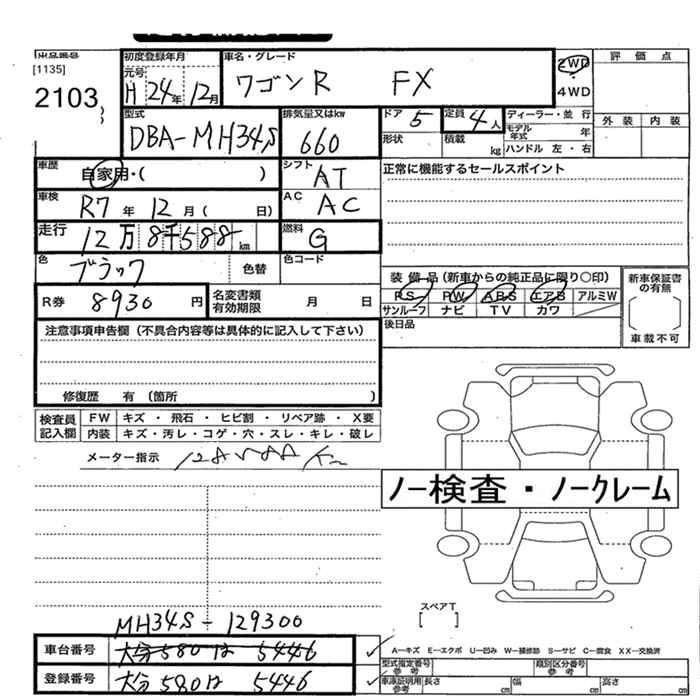 出品番号
[1135]
2103
初度登録年月
元号
H 24年 12月
車名・グレード
ワゴンR FX
2WD
4WD
評価点
外装 内装
型式
DBA-MH34S
排気量又はkw
660
ドア 5
形状
定員 4人
積載 kg
ディーラー・並行
モデル年式 年
ハンドル 左・右
車歴
自家用・( )
シフト
AT
正常に機能するセールスポイント
車検
R7年 12月( 日)
AC
AC
走行
12万8千588km
燃料
G
色
ブラック
色替
色コード
装備品(新車からの純正品に限り○印)
PS PW ABS エアB アルミW
サンルーフ ナビ TV カワ
後日品
新車保証書の有無
[ ]
車載不可
R券 8930円
名変書類有効期限 月 日
注意事項申告欄(不具合内容等は具体的に記入して下さい)
修復歴 有(箇所 )
検査員記入欄
FW キズ・飛石・ヒビ割・リペア跡・X要
内装 キズ・汚レ・コゲ・穴・スレ・キレ・破レ
メーター指示
ノー検査・ノークレーム
スペアT
[ ]
MH34S-129300
車台番号 大分580は 5446
登録番号 大分580は 5446
A-キズ E-エクボ U-凹み W-補修跡 S-サビ C-腐食 XX-交換済
型式指定番号 参考
類別区分番号 参考
車庫証明用 参考
長さ cm 幅 cm 高さ cm